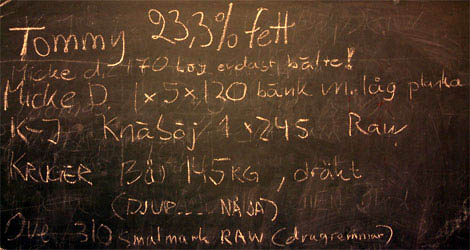 Tommy 23,3% fett
Micke d. 170 böj endast bälte!
Micke D. 1x5x120 bänk m. låg planka
K-J Knäböj 1x245 Raw
KRUGER Böj 145KG, dräkt
(DJUP.... NÄJA)
Ove 310 smalmark RAW (dragremmar)